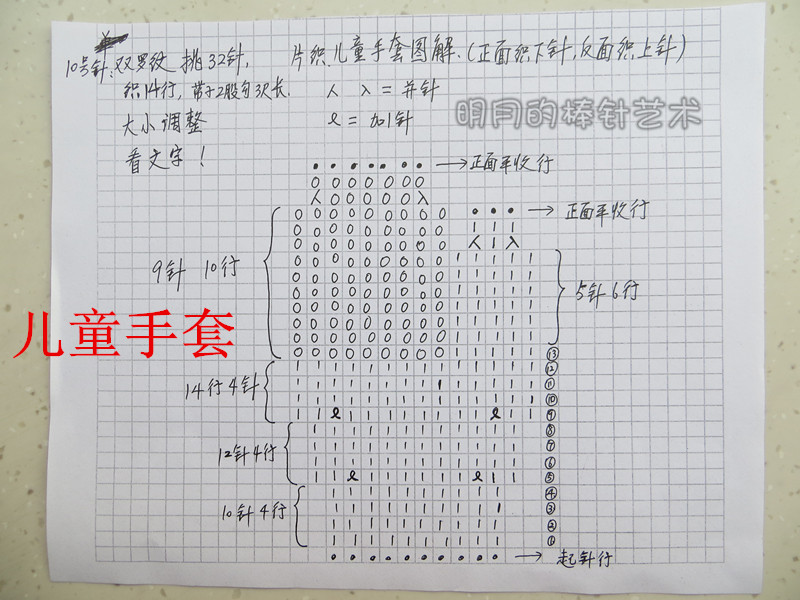 10号针,双罗纹 挑32针, 片织儿童手套图解.(正面织下针,反面织上针)
织14行,带子2股勾3尺长. 人 入 = 并针
明月的棒针艺术
大小调整 ℓ = 加1针
看文字!
正面平收行
正面平收行
9针 10行
5针6行
儿童手套
14行4针
12针4行
10针4行
⑬
⑫
⑪
⑩
⑨
⑧
⑦
⑥
⑤
④
③
②
①
起针行